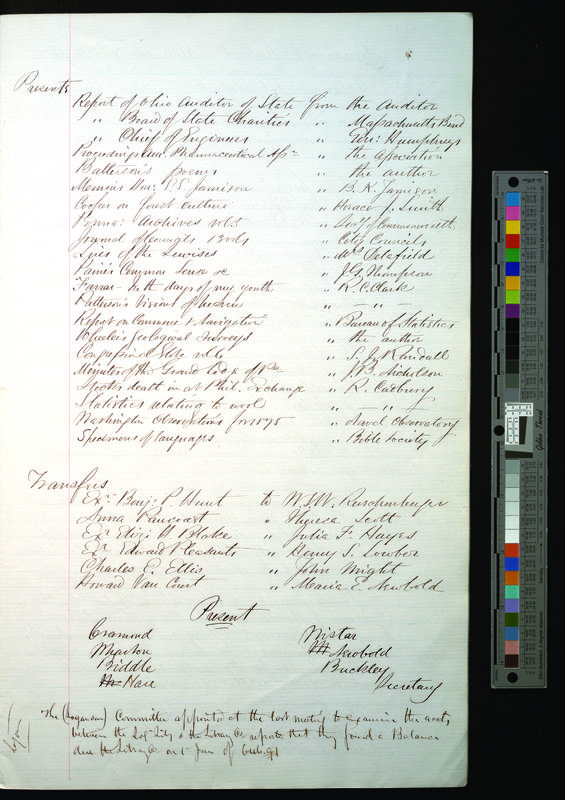 Presents
Report of Ohio Auditor of State from the Auditor
" Board of State Charities " Massachusetts Board
" Chief of Engineers " Gen: Humphreys
Proceedings Am. Pharmaceutical Assn " the association
Batterson's poems " the author
Memoirs S. Jamison " B. K. Jamison
Cooper on Court Culture " Horace J. Smith
Penna: Archives vol: " Secy of Commonwealth
Journal of Councils 13 vols " City Councils
Lives of the " Mrs
Paine's Common Sense &c " J. G. Thompson
Farrar - In the days of my youth " R. C. Clark
Patterson's Visions of " — " —
Report on Commerce & Navigation " Bureau of Statistics
Wheeler's Geological Surveys " the author
Congressional Globe vols " S. J. Randall
Minutes of the Grand Lodge of Pa " J. B. Nicholson
Stocks dealt in at Phil. Exchange " R. Cadbury
Statistics relating to wool " — " —
Washington Observations for 1875 " Naval Observatory
Specimens of languages " Bible Society
Transfers
Exr Benj. P. Hunt to W. S. W. Ruschenberger
Anna " Theresa Scott
Exr Eliz H. Blake " Julia F. Hayes
Exr Edward Pleasants " Henry S. Lowber
Charles E. Ellis " John Wright
Howard Van Court " Maria E. Newbold
Present
Cramond Wistar
Newbold
Biddle Buckley
Hare Secretary
The (Loganian) Committee appointed at the last meeting to examine the accts
between the Logn Liby & the Library Co report that they found a Balance
due the Library Co on 1st Jan of